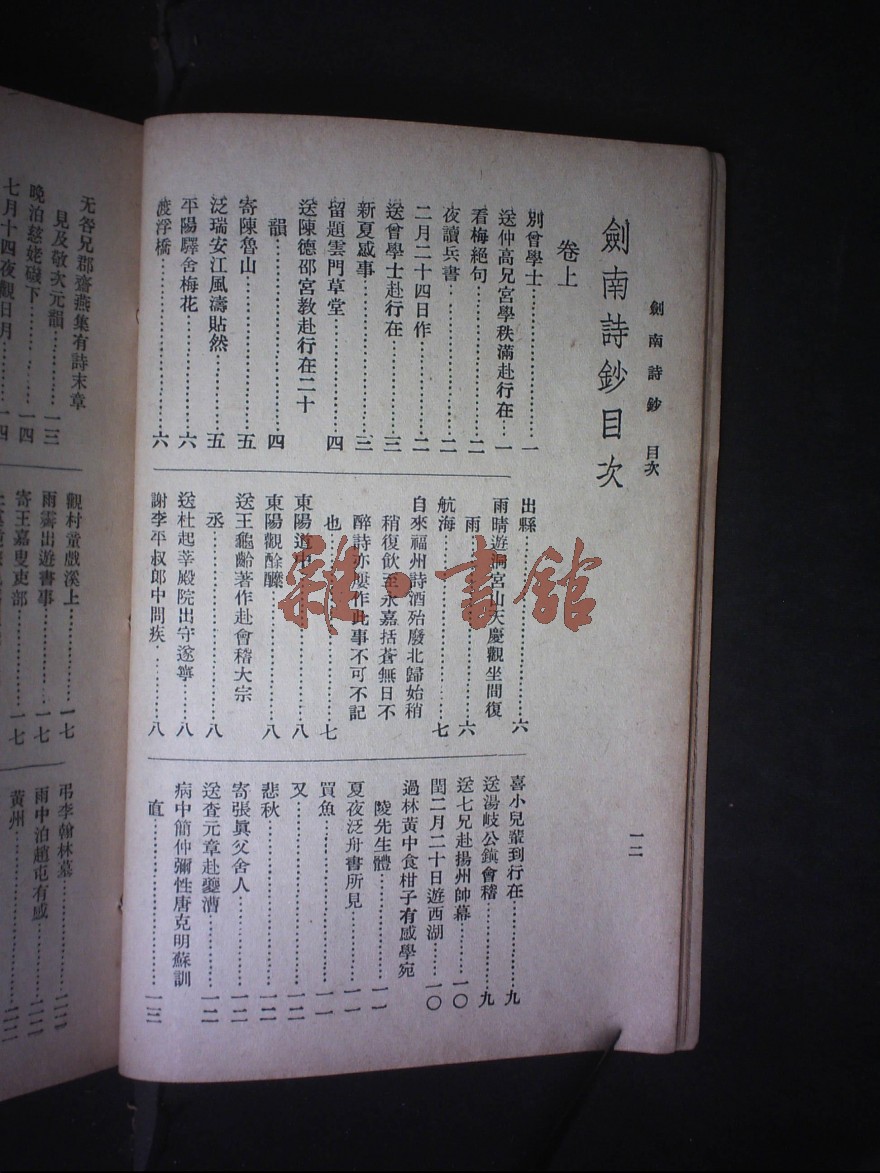 劍南詩鈔 目次
一二
劍南詩鈔目次
卷上
別曾學士…………一
送仲高兄宮學秩滿赴行在…一
看梅絕句…………二
夜讀兵書…………二
二月二十四日作…………二
送曾學士赴行在…………三
新夏感事…………三
留題雲門草堂…………四
送陳德邵宮教赴行在二十
韻…………四
寄陳魯山…………五
泛瑞安江風濤貼然…………五
平陽驛舍梅花…………六
渡浮橋…………六
出縣…………六
雨晴遊洞宮山天慶觀坐間復
雨…………六
航海…………七
自來福州詩酒殆廢北歸始稍
稍復飲至永嘉括蒼無日不
醉詩亦屢作此事不可不記
也…………七
東陽道中…………八
東陽觀酴醾…………八
送王龜齡著作赴會稽大宗
丞…………八
送杜起莘殿院出守遂寧…八
謝李平叔郎中問疾…………八
喜小兒輩到行在…………九
送湯岐公鎮會稽…………九
送七兄赴揚州帥幕…………一〇
閏二月二十日遊西湖…一〇
過林黃中食柑子有感學宛
陵先生體…………一一
夏夜泛舟書所見…………一一
買魚…………一一
又…………一二
悲秋…………一二
寄張眞父舍人…………一二
送查元章赴夔漕…………一二
病中簡仲彌性唐克明蘇訓
直…………一三
无咎兄郡齋燕集有詩末章
見及敬次元韻…………一三
晚泊慈姥磯下…………一四
七月十四夜觀月…………一四
觀村童戲溪上…………一七
雨霽出遊書事…………一七
寄王嘉叟吏部…………一七
弔李翰林墓…………二二
雨中泊趙屯有感…………二二
黃州…………二二
雜·書館